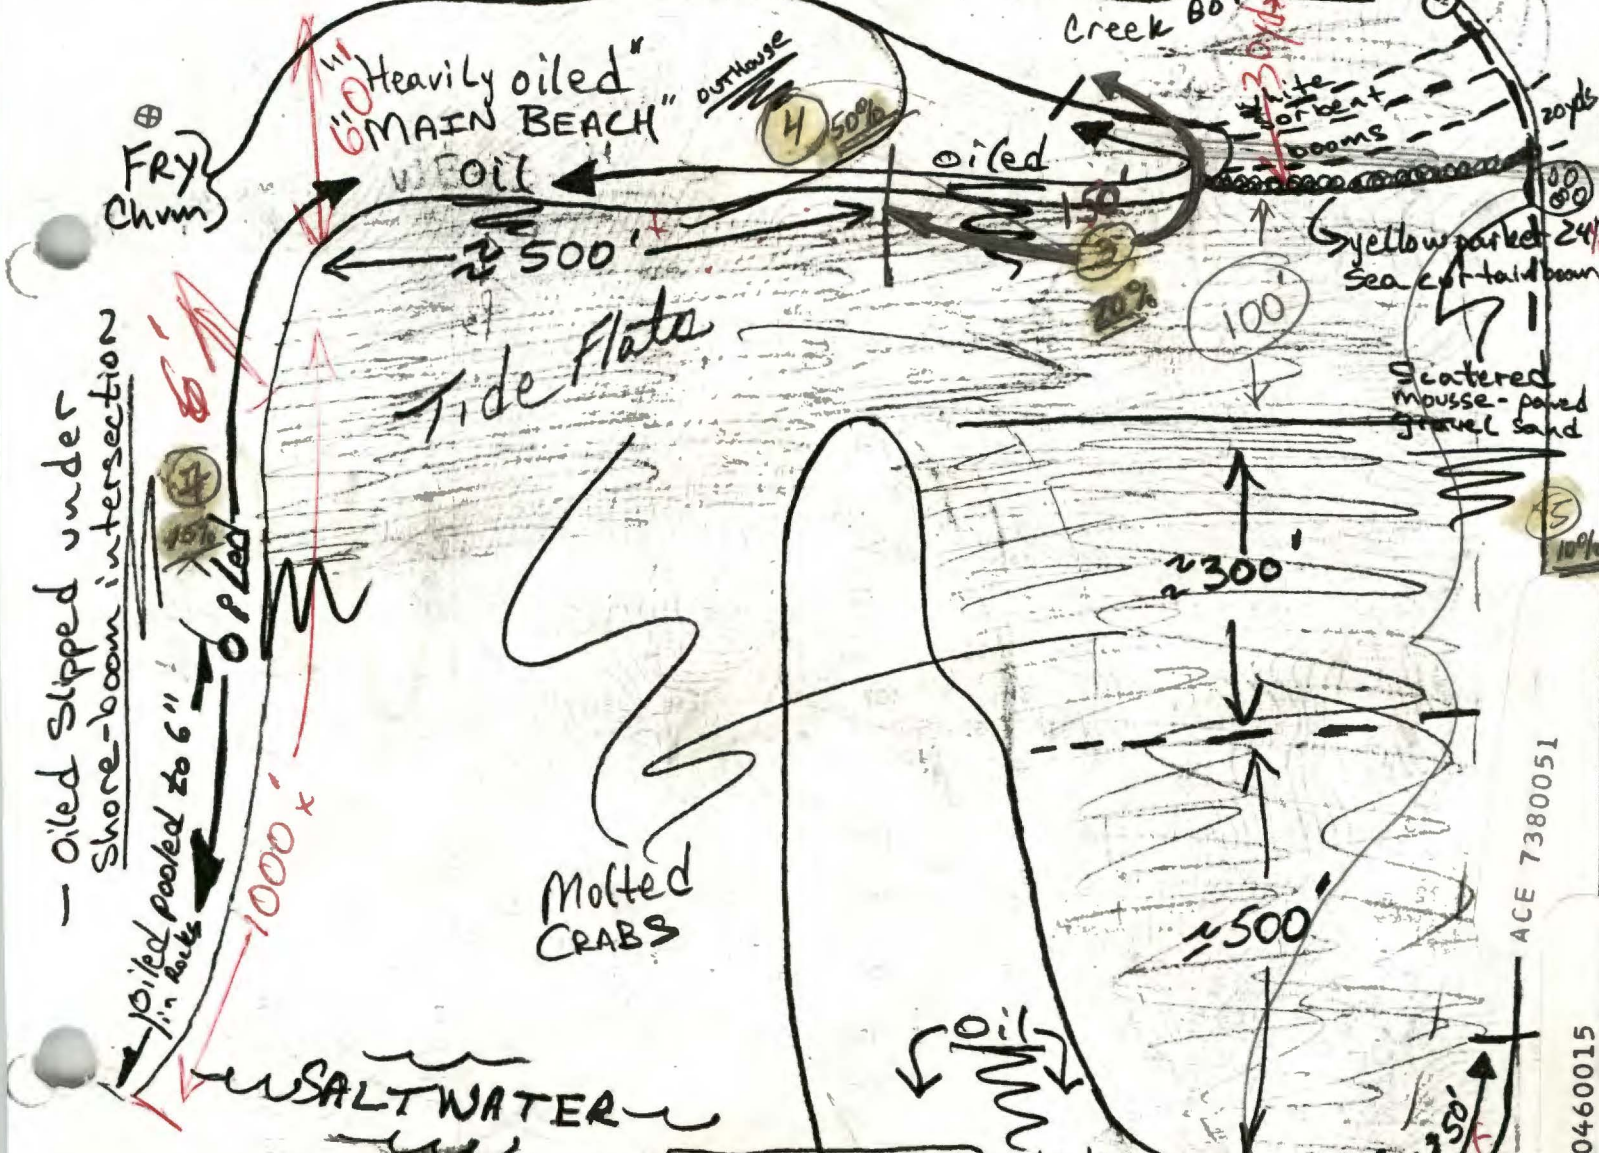 Creek
30yds
"Heavily oiled"
"MAIN BEACH"
60'
OUTHOUSE
4
50%
white
sorbent
booms
20yds
FRY
Chum
Oil
oiled
150'
≈ 500'
20%
yellow parket 24
Sea curtain boom
100'
Tide Flats
6'
Scatered
mousse-paved
gravel sand
5
10%
10%
≈300'
— Oiled Slipped under
Shore-boom intersection
Oiled pooled to 6"
in Rocks
1000'
x
Molted
CRABS
~500'
Oil
SALTWATER
350'
ACE 7380051
0460015